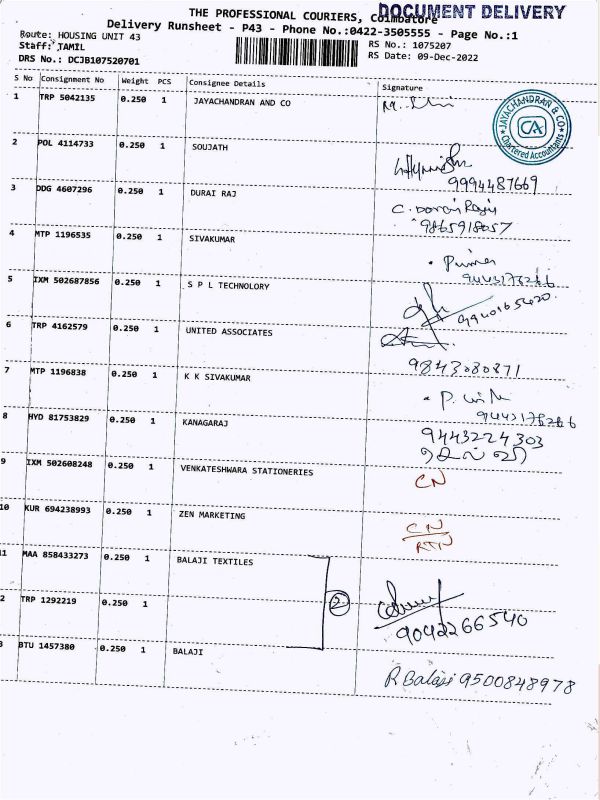 DOCUMENT DELIVERY
THE PROFESSIONAL COURIERS, Coimbatore
Delivery Runsheet - P43 - Phone No.:0422-3505555 - Page No.:1
Route: HOUSING UNIT 43
Staff: TAMIL
DRS No.: DCJB107520701
RS No.: 1075207
RS Date: 09-Dec-2022
S No Consignment No Weight PCS Consignee Details Signature
1 TRP 5042135 0.250 1 JAYACHANDRAN AND CO
JAYACHANDRAN & CO
CA
Chartered Accountants
2 POL 4114733 0.250 1 SOUJATH
9994487669
3 DDG 4607296 0.250 1 DURAI RAJ
9865918057
4 MTP 1196535 0.250 1 SIVAKUMAR
5 IXM 502687856 0.250 1 S P L TECHNOLORY
6 TRP 4162579 0.250 1 UNITED ASSOCIATES
9843080871
7 MTP 1196838 0.250 1 K K SIVAKUMAR
8 HYD 81753829 0.250 1 KANAGARAJ
9443224303
9 IXM 502608248 0.250 1 VENKATESHWARA STATIONERIES
CN
10 KUR 694238993 0.250 1 ZEN MARKETING
CN
RTN
11 MAA 858433273 0.250 1 BALAJI TEXTILES
2
2 TRP 1292219 0.250 1
9042266540
3 BTU 1457380 0.250 1 BALAJI
R Balaji 9500848978